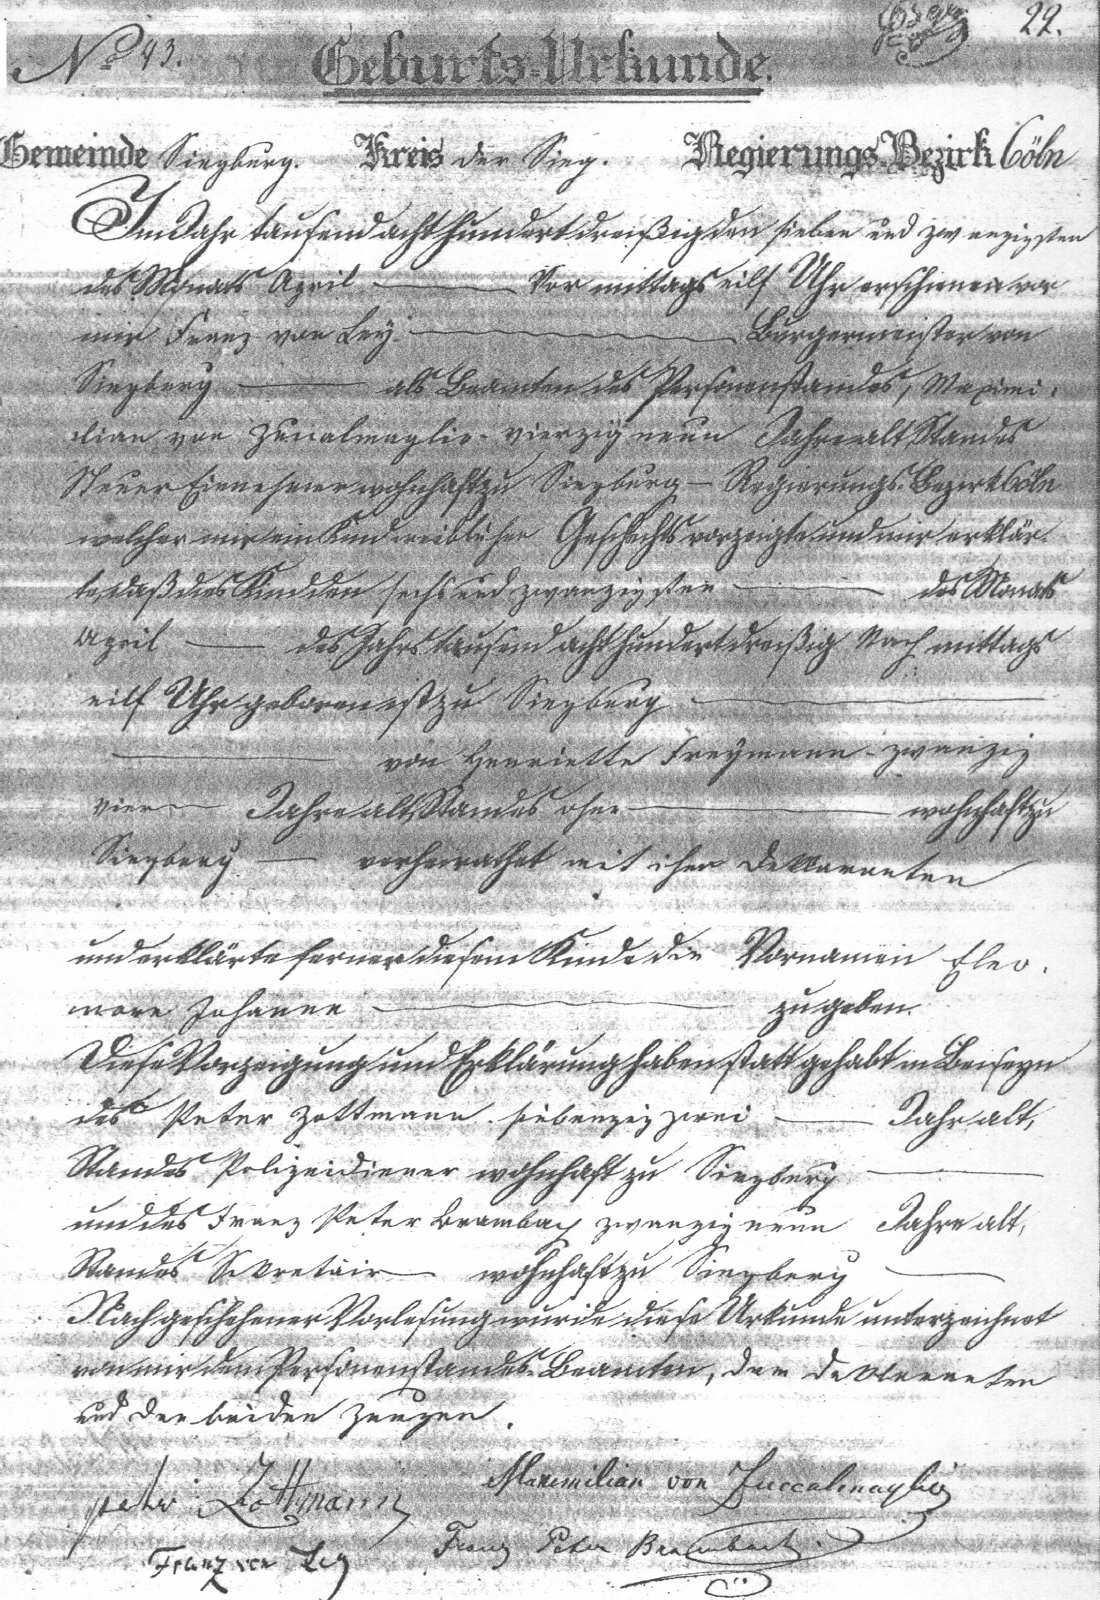 No 43.
22.
Geburts-Urkunde.
Gemeinde Siegburg. Kreis der Sieg. Regierungs-Bezirk Cöln
Im Jahr tausend acht hundert dreißig den sieben und zwanzigsten
des Monats April Vor mittags eilf Uhr erschienen vor
mir Franz von Ley Bürgermeister von
Siegburg als Beamten des Personenstandes, Maximi-
lian von Zucalmaglio vierzig neun Jahre alt, Standes
Steuer Einnehmer wohnhaft zu Siegburg Regierungs-Bezirk Cöln
welcher mir ein Kind weiblichen Geschlechts vorzeigte und mir erklär-
te, daß dies Kind den sechs und zwanzigsten des Monats
April des Jahrs tausend acht hundert dreißig Nach mittags
eilf Uhr geboren ist zu Siegburg
von Henriette Freymann zwanzig
vier Jahre alt, Standes ohne wohnhaft zu
Siegburg verheirathet mit ihm Deklaranten
und erklärte ferner diesem Kinde die Vornamen Eleo-
nore Johanne zu geben.
Diese Vorzeigung und Erklärung haben statt gehabt in Beiseyn
des Peter Zottmann siebenzig zwei Jahr alt,
Standes Polizeidiener wohnhaft zu Siegburg
und des Franz Peter Brambach zwanzig neun Jahre alt,
Standes Sekretair wohnhaft zu Siegburg
Nach geschehener Vorlesung wurde diese Urkunde unterzeichnet
von mir dem Personenstandes-Beamten, dem Deklaranten
und den beiden Zeugen.
Peter Zottmann Maximilian von Zuccalmaglio
Franz von Ley Franz Peter Brambach